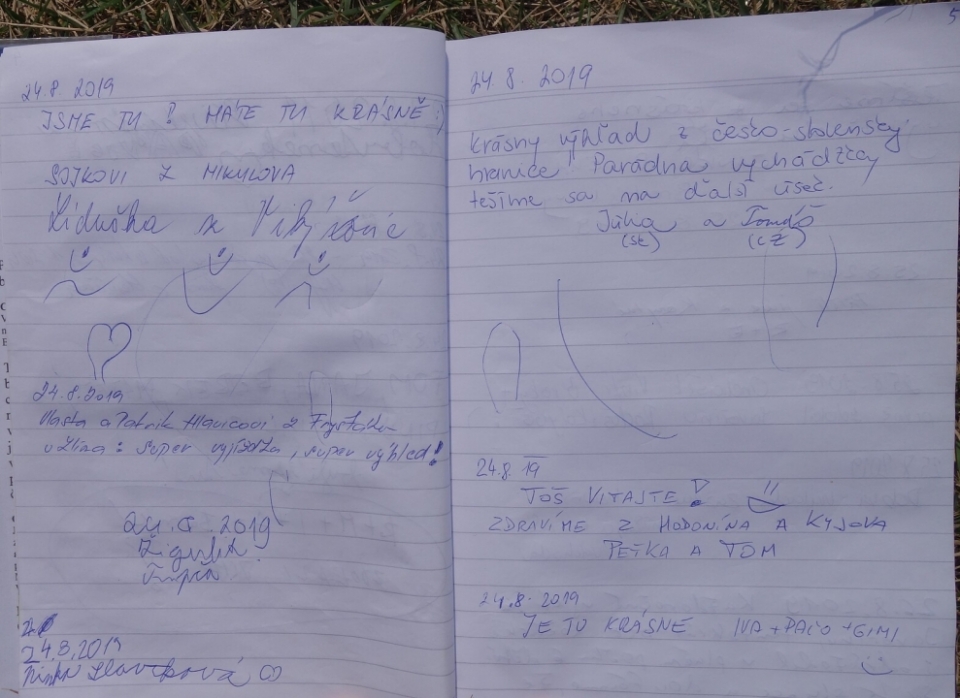 24.8 2019
JSME TU! MÁTE TU KRÁSNĚ :)
SOJKOVI Z MIKULOVA
Liduška z
24.8.2019
Vlasta a Patrik Hlavicovi z Fryštáku
u Zlína: super vyjížďka, super výhled!
2019
Žigulík
24.8.2019
Slavíková
5
24.8. 2019
Krásny výhľad z česko-slolenský
hranice Parádna vychádzky
tešíme sa na ďalší úseč.
Julka a Tomáš
(SK) (CZ)
24.8. 19
TOŠ VITAJTE!
ZDRAVÍME Z HODONÍNA A KYJOVA
PEŤKA A TOM
24.8. 2019
JE TU KRÁSNE IVA + PAĹO + GIMI